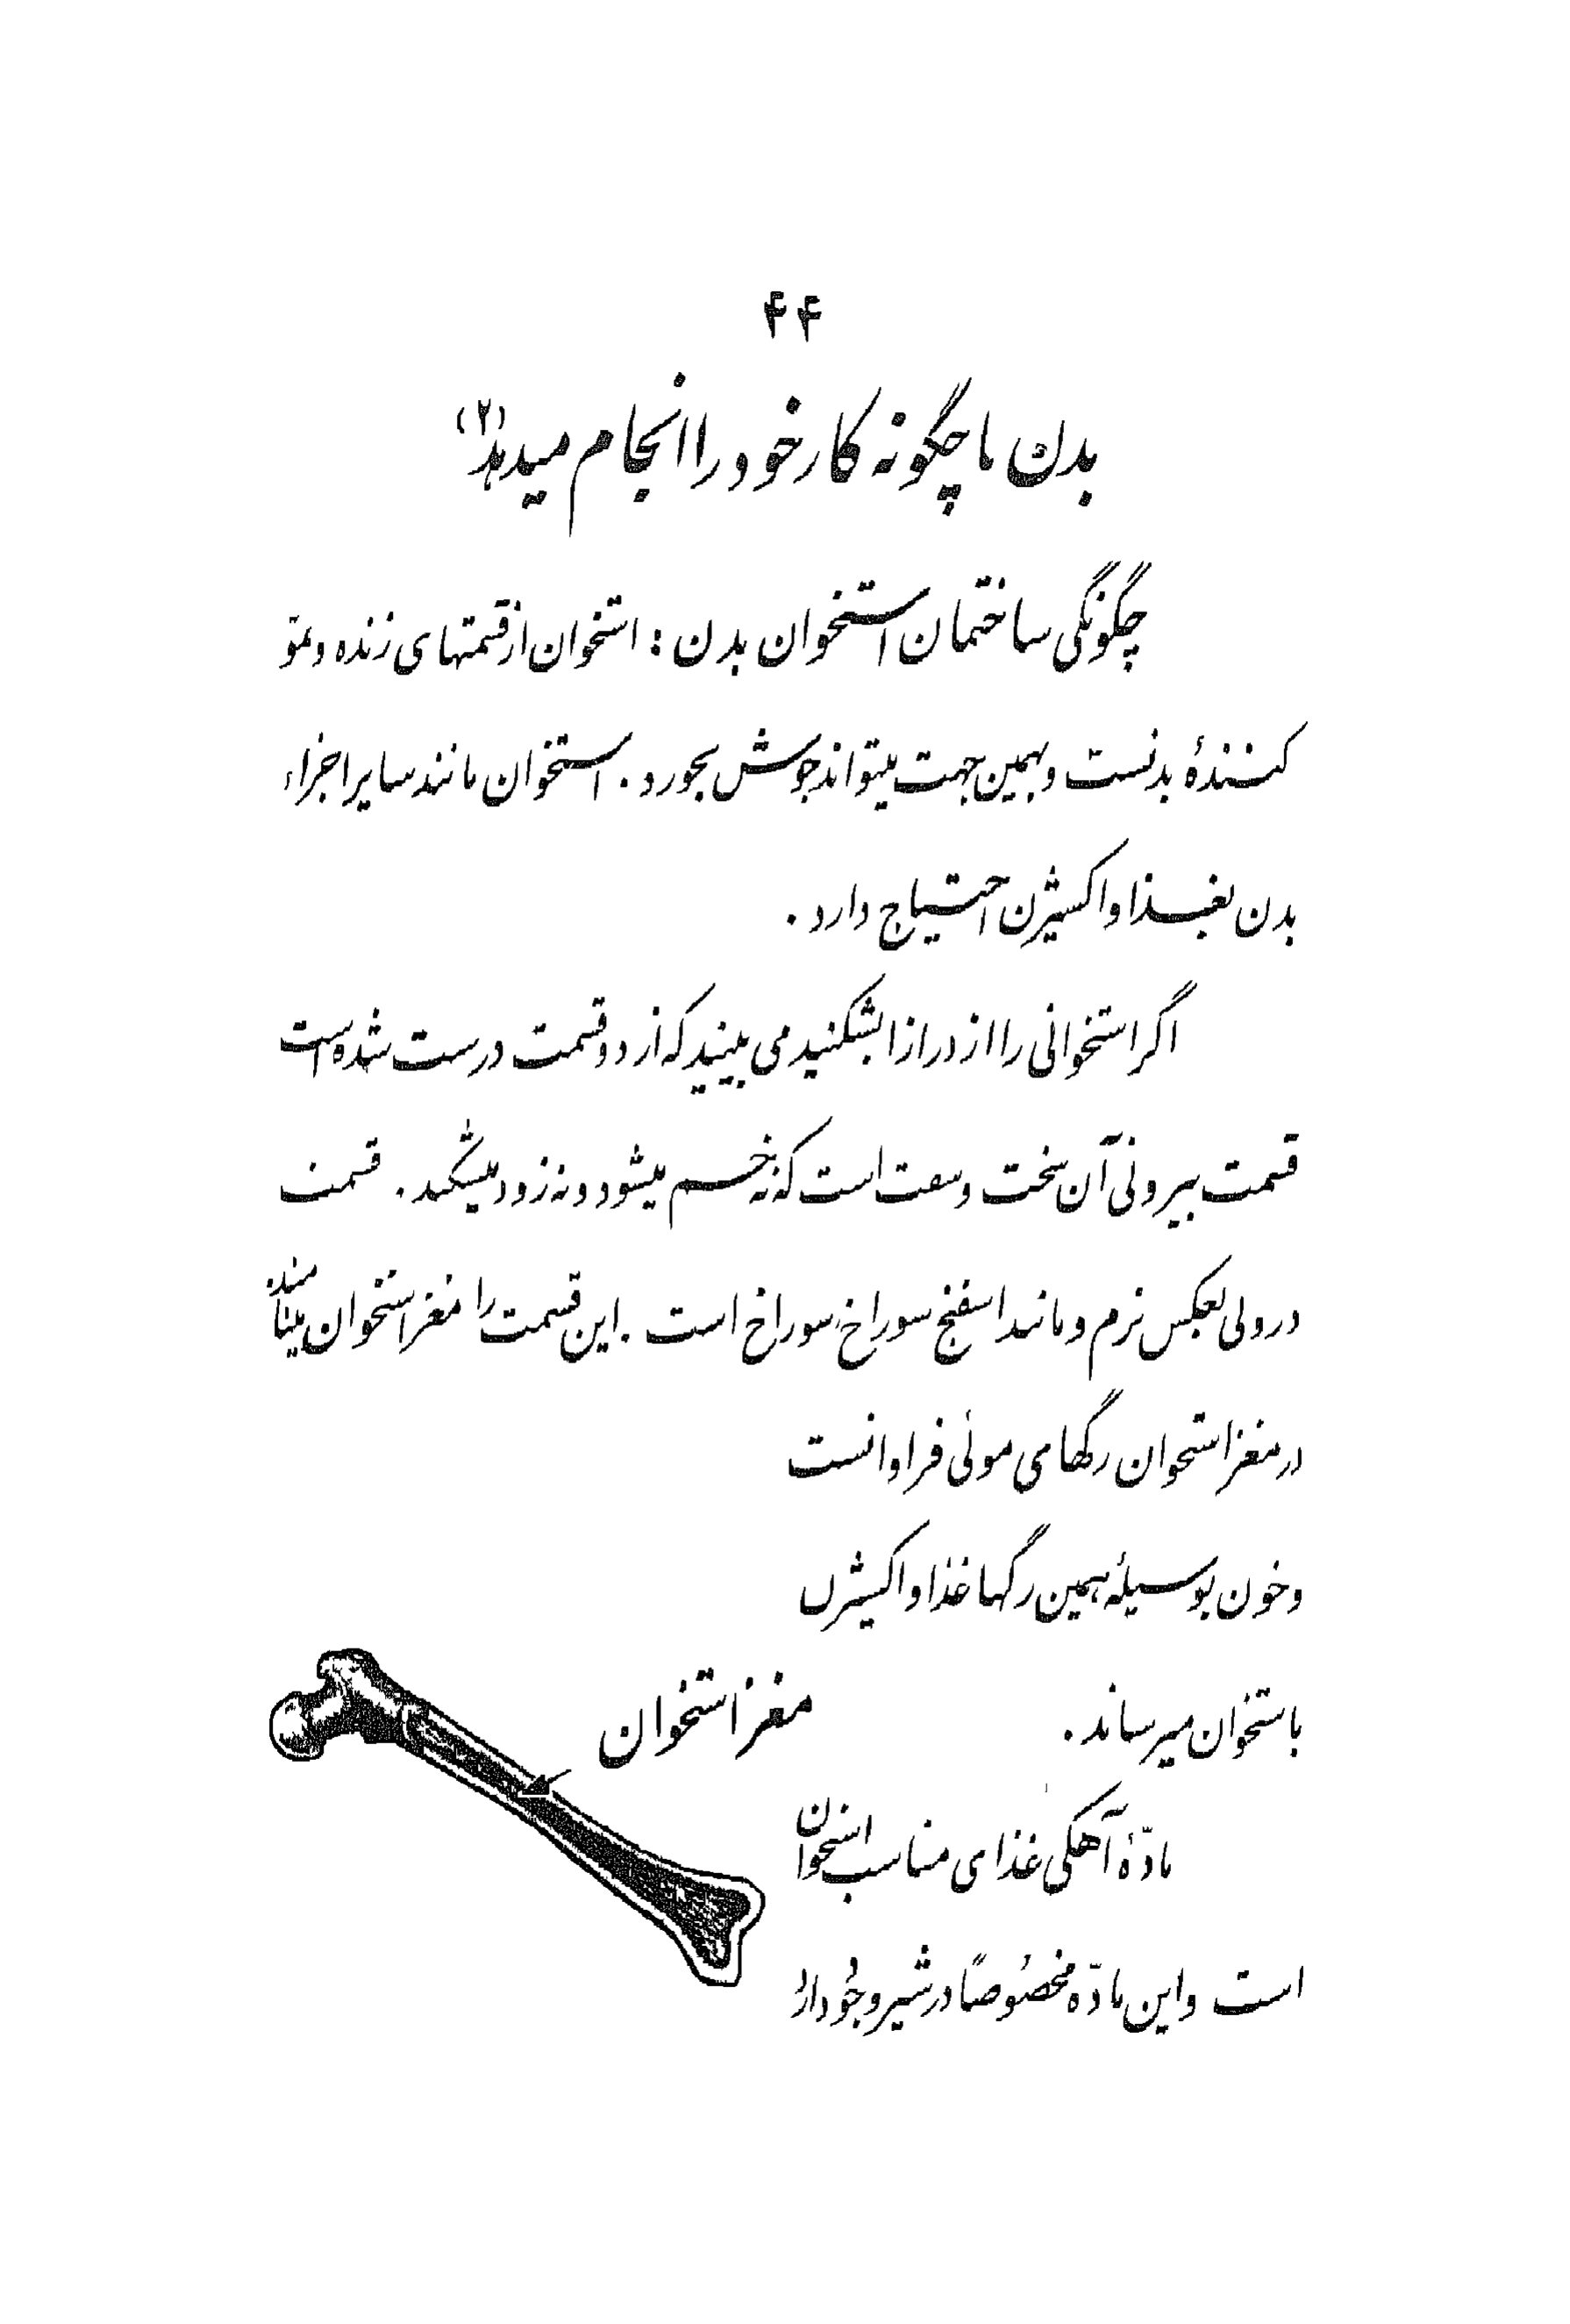 ۴۴
بدن ما چگونه کار خود را انجام میدهد (۲)
چگونگی ساختمان استخوان بدن : استخوان از قسمتهای زنده و نموّ
کنندهٔ بدنست و بهمین جهت میتواند جوش بخورد . استخوان مانند سایر اجزاء
بدن بغذا و اکسیژن احتیاج دارد .
اگر استخوانی را از درازا بشکنید می بینید که از دو قسمت درست شده است
قسمت بیرونی آن سخت و سفت است که نه خم میشود و نه زود میشکند . قسمت
درونی بعکس نرم و مانند اسفنج سوراخ سوراخ است . این قسمت را مغز استخوان مینامند .
در مغز استخوان رگهای موئی فراوانست
و خون بوسیلهٔ همین رگها غذا و اکسیژن
باستخوان میرساند .
مغز استخوان
مادّهٔ آهکی غذای مناسب استخوان
است و این مادّه مخصوصاً در شیر وجود دارد